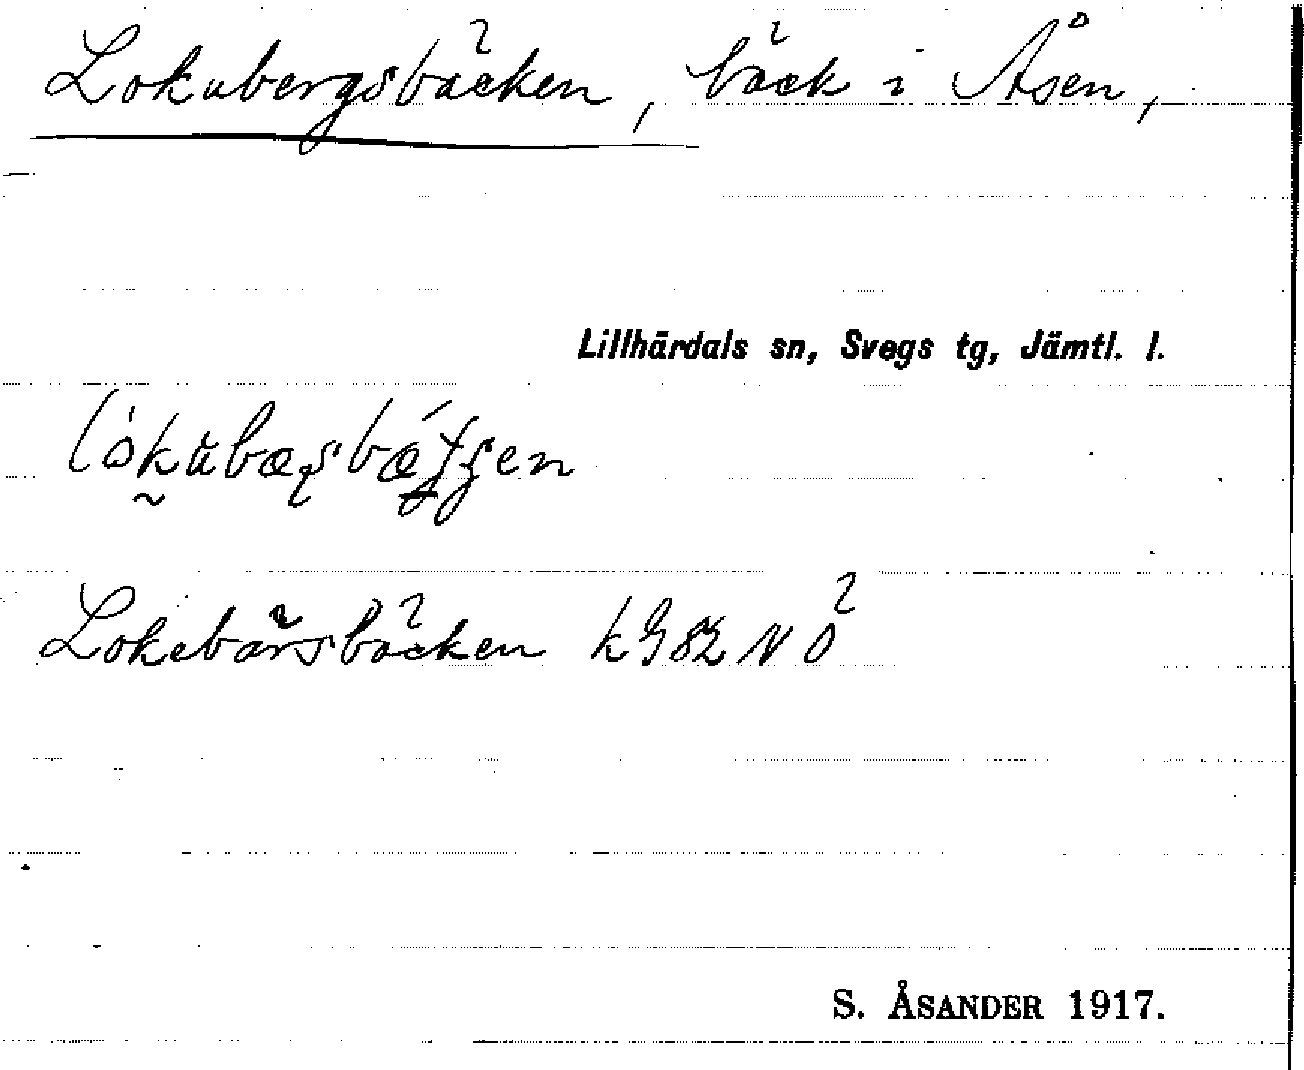 Lokubergsbäcken, bäck i Åsen,
Lillhärdals sn, Svegs tg, Jämtl. l.
Lokebärsbäcken kG82 NÖ
S. ÅSANDER 1917.